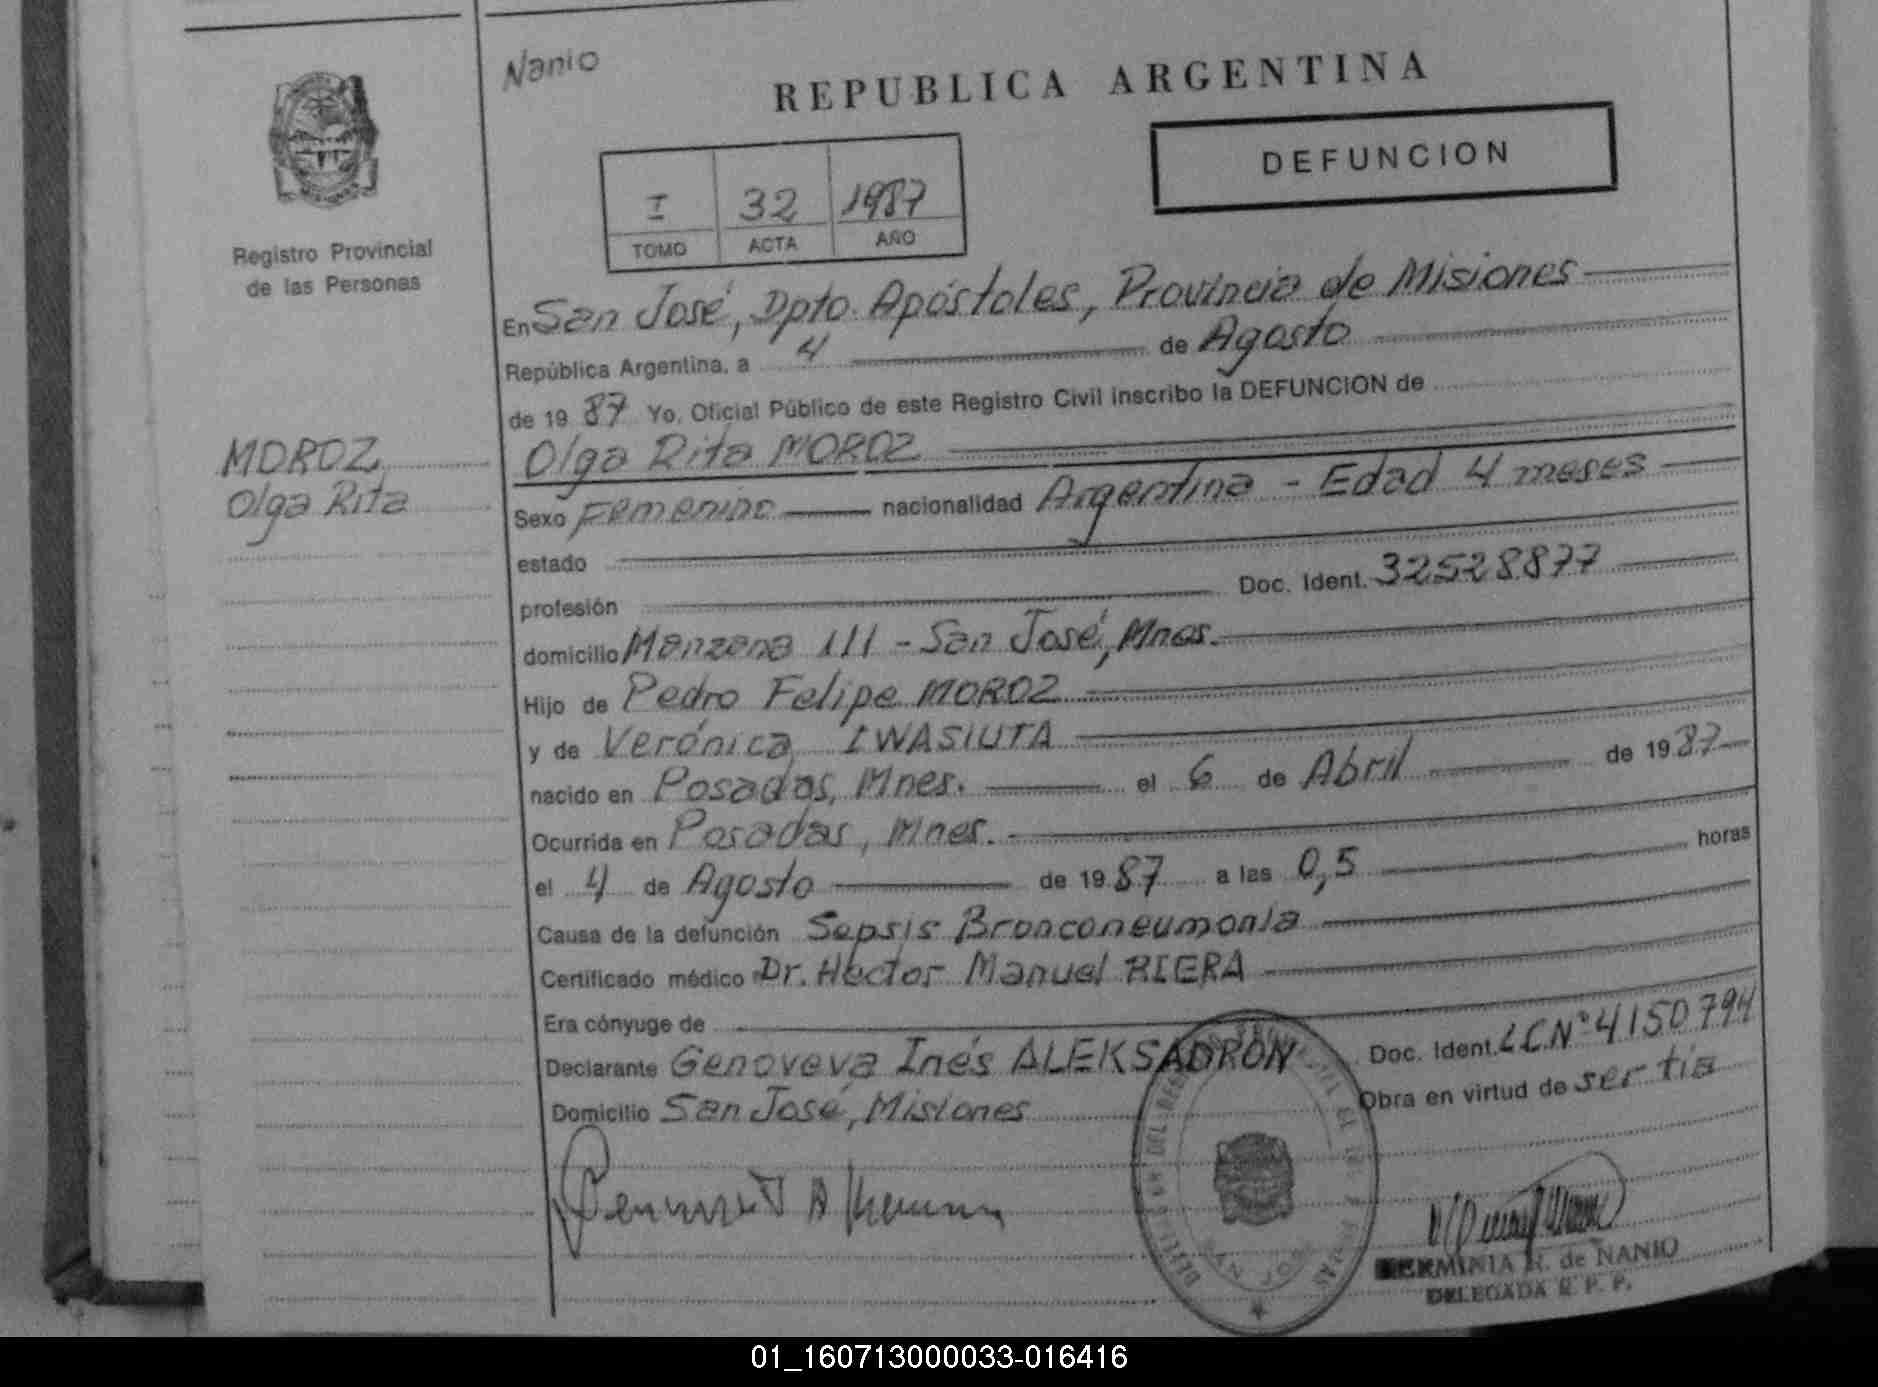 Nanio
REPUBLICA ARGENTINA
DEFUNCION
I 32 1987
TOMO ACTA AÑO
Registro Provincial
de las Personas
En San José, Dpto. Apóstoles, Provincia de Misiones
República Argentina, a 4 de Agosto
de 1987 Yo, Oficial Público de este Registro Civil inscribo la DEFUNCION de
MOROZ
Olga Rita
Olga Rita MOROZ
Sexo Femenino nacionalidad Argentina - Edad 4 meses
estado
profesión Doc. Ident. 32528877
domicilio Manzana 111 - San José, Mnes.
Hijo de Pedro Felipe MOROZ
y de Verónica IWASIUTA
nacido en Posadas, Mnes. el 6 de Abril de 1987
Ocurrida en Posadas, Mnes.
el 4 de Agosto de 1987 a las 0,5 horas
Causa de la defunción Sepsis Bronconeumonia
Certificado médico Dr. Hector Manuel RIERA
Era cónyuge de
Declarante Genoveva Inés ALEKSADRON Doc. Ident. LC Nº 4150794
Domicilio San José, Misiones Obra en virtud de ser tia
HERMINIA R. de NANIO
DELEGADA R. P. P.
01_160713000033-016416